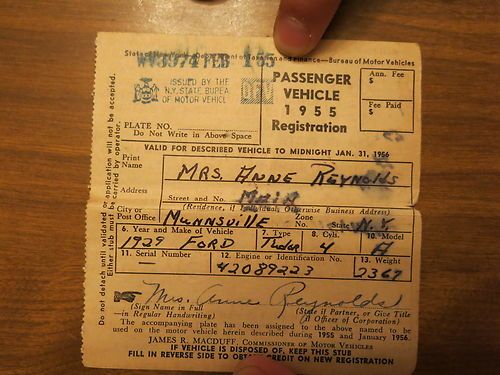 State of New York—Department of Taxation and Finance—Bureau of Motor Vehicles
WV3974 FEB
ISSUED BY THE
N.Y. STATE BUREA
OF MOTOR VEHICL
PASSENGER
VEHICLE
1955
Registration
Ann. Fee
$
Fee Paid
$
PLATE NO.
Do Not Write in Above Space
VALID FOR DESCRIBED VEHICLE TO MIDNIGHT JAN. 31, 1956
Print
Name
MRS. ANNE REYNOLDS
Address
Street and No. MAIN
(Residence, if Individual, Otherwise Business Address)
City or
Post Office MUNNSVILLE Zone
No. State N.Y.
6. Year and Make of Vehicle 7. Type 8. Cyls. 10. Model
1929 FORD Tudor 4 A
11. Serial Number 12. Engine or Identification No. 13. Weight
— A2089223 2367
Mrs. Anne Reynolds
(Sign Name in Full
—in Regular Handwriting)
(State if Partner, or Give Title
if Officer of Corporation)
The accompanying plate has been assigned to the above named to be
used on the motor vehicle herein described during 1955 and January 1956.
JAMES R. MACDUFF, COMMISSIONER OF MOTOR VEHICLES
IF VEHICLE IS DISPOSED OF, KEEP THIS STUB
FILL IN REVERSE SIDE TO OBTAIN CREDIT ON NEW REGISTRATION
Do not detach until validated or application will not be accepted.
Either stub must be carried by operator.